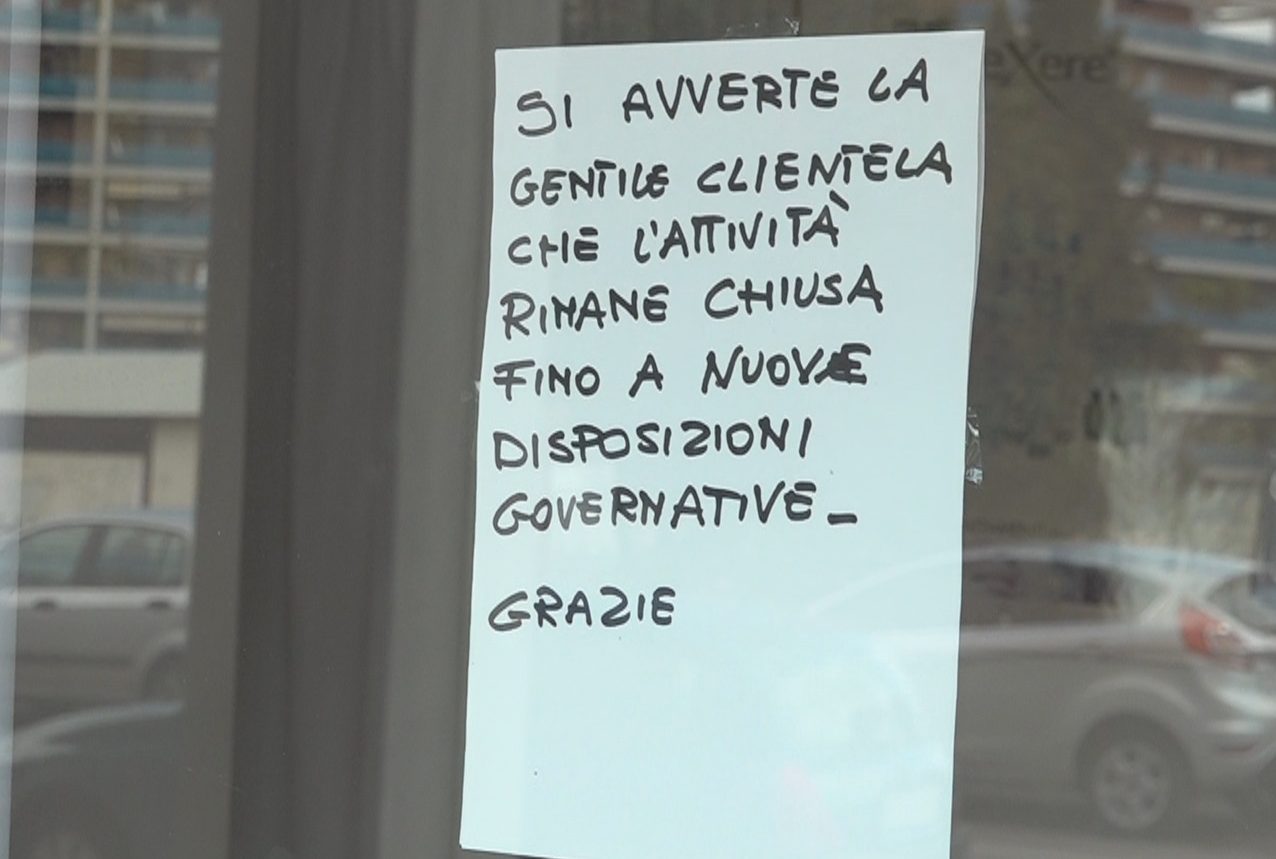 SI AVVERTE LA
GENTILE CLIENTELA
CHE L'ATTIVITÀ
RIMANE CHIUSA
FINO A NUOVE
DISPOSIZIONI
GOVERNATIVE_
GRAZIE